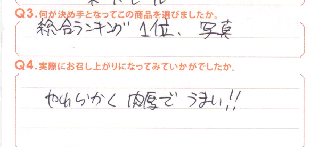 Q3.何が決め手となってこの商品を選びましたか。
総合ランキング1位、写真
Q4.実際にお召し上がりになってみていかがでしたか。
やわらかく肉厚でうまい!!